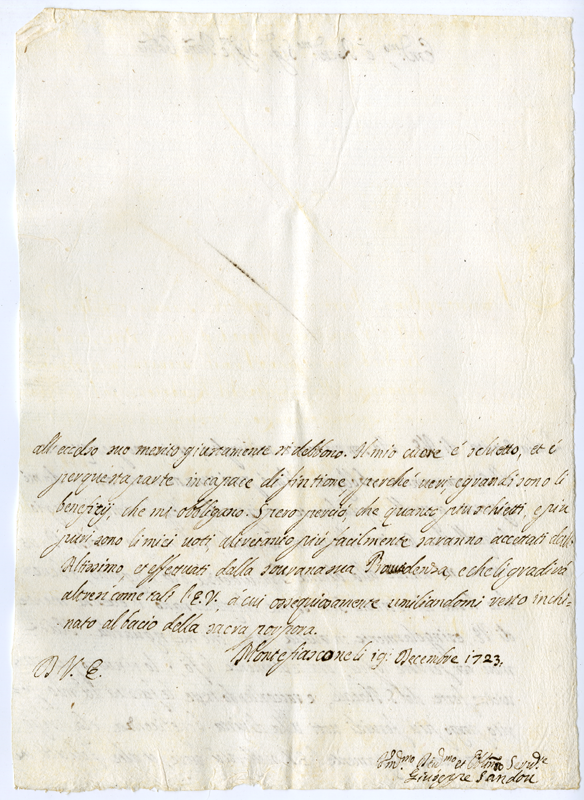 all'eccelso suo merito giustamente si debbono. Il mio cuore é schietto, et é
per questa parte incapace di fintione, perche veri, e grandi sono li
benefizÿ, che mi obbligano. Spero perciò, che quanto più schietti, e più
puri sono li miei voti, altretanto più facilmente saranno accettati dall'
Altissimo, et effettuati dalla sourana sua Prouidenza, e che li gradirà
altresi come tali l'E.V. á cui ossequiosamente umiliandomi resto inchi-
nato al bacio della sacra porpora.
Montefiascone li 19: Decembre 1723.
D V. E.
Giuseppe